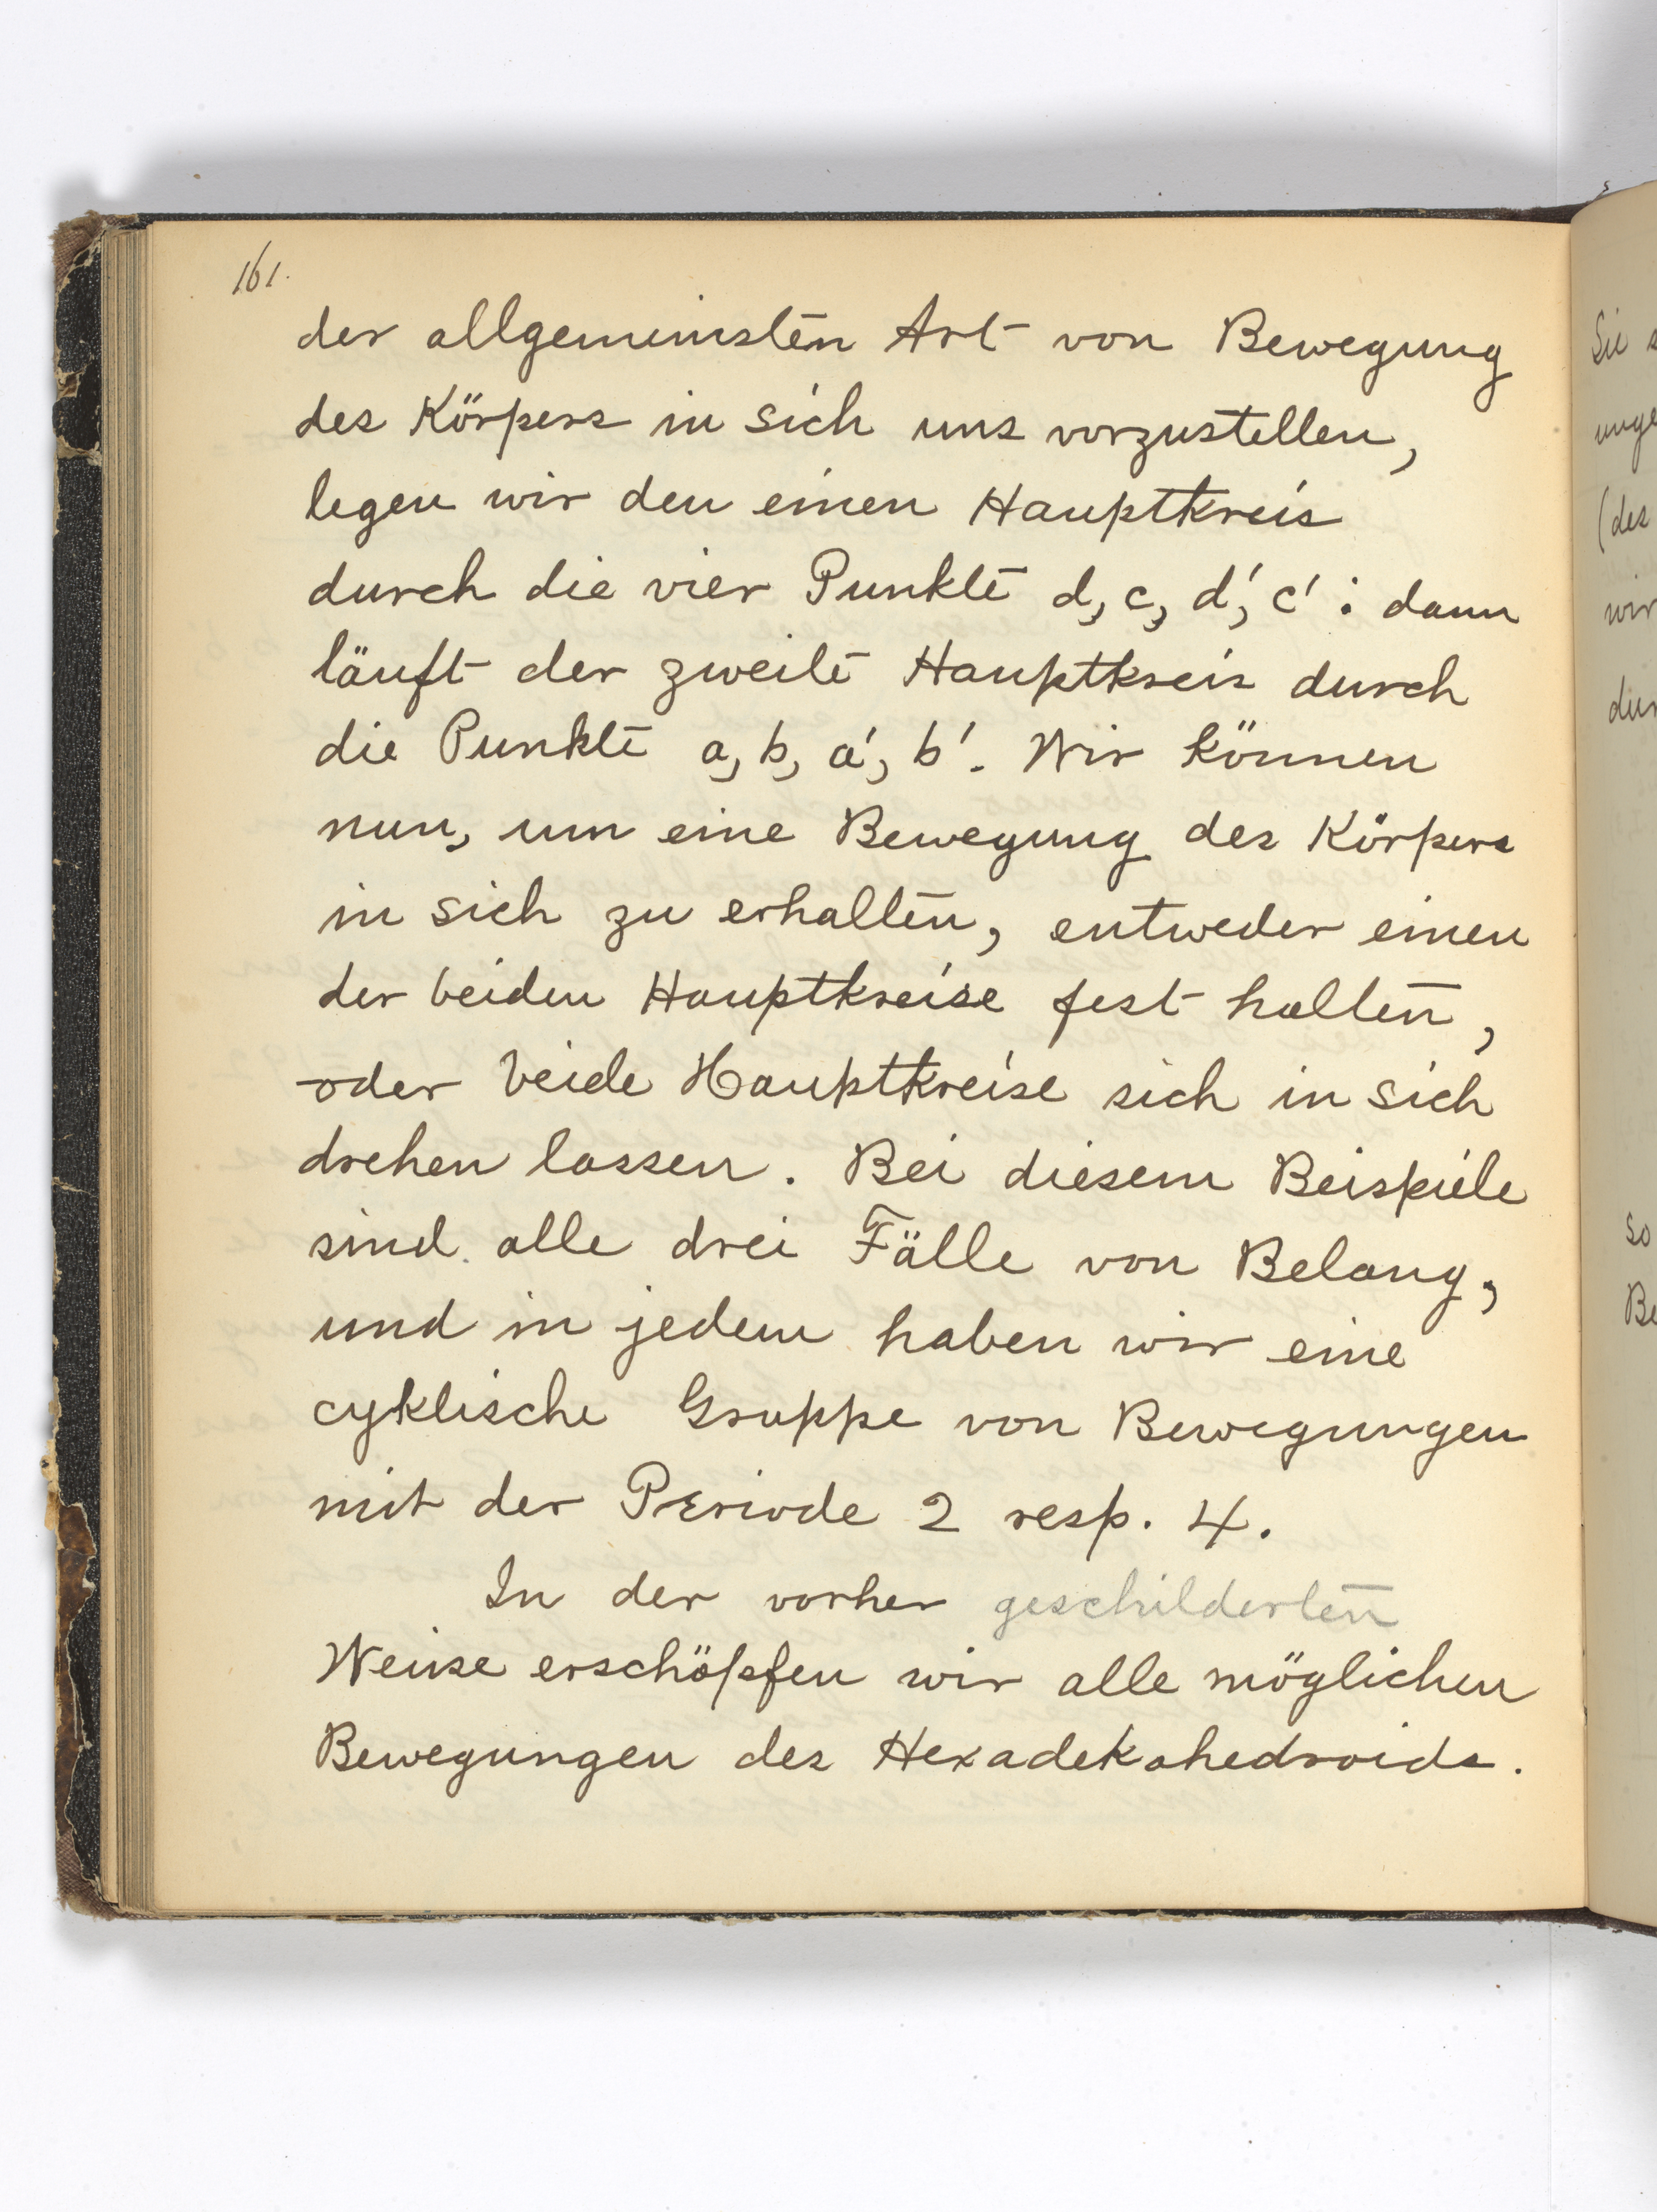 161.
der allgemeinsten Art von Bewegung
des Körpers in sich uns vorzustellen,
legen wir den einen Hauptkreis
durch die vier Punkte d, c, d', c' : dann
läuft der zweite Hauptkreis durch
die Punkte a, b, a', b'. Wir können
nun, um eine Bewegung des Körpers
in sich zu erhalten, entweder einen
der beiden Hauptkreise fest halten,
oder beide Hauptkreise sich in sich
drehen lassen. Bei diesem Beispiele
sind alle drei Fälle von Belang,
und in jedem haben wir eine
cyklische Gruppe von Bewegungen
mit der Periode 2 resp. 4.
In der vorher geschilderten
Weise erschöpfen wir alle möglichen
Bewegungen des Hexadekahedroids.
Sie
(des
wir
so